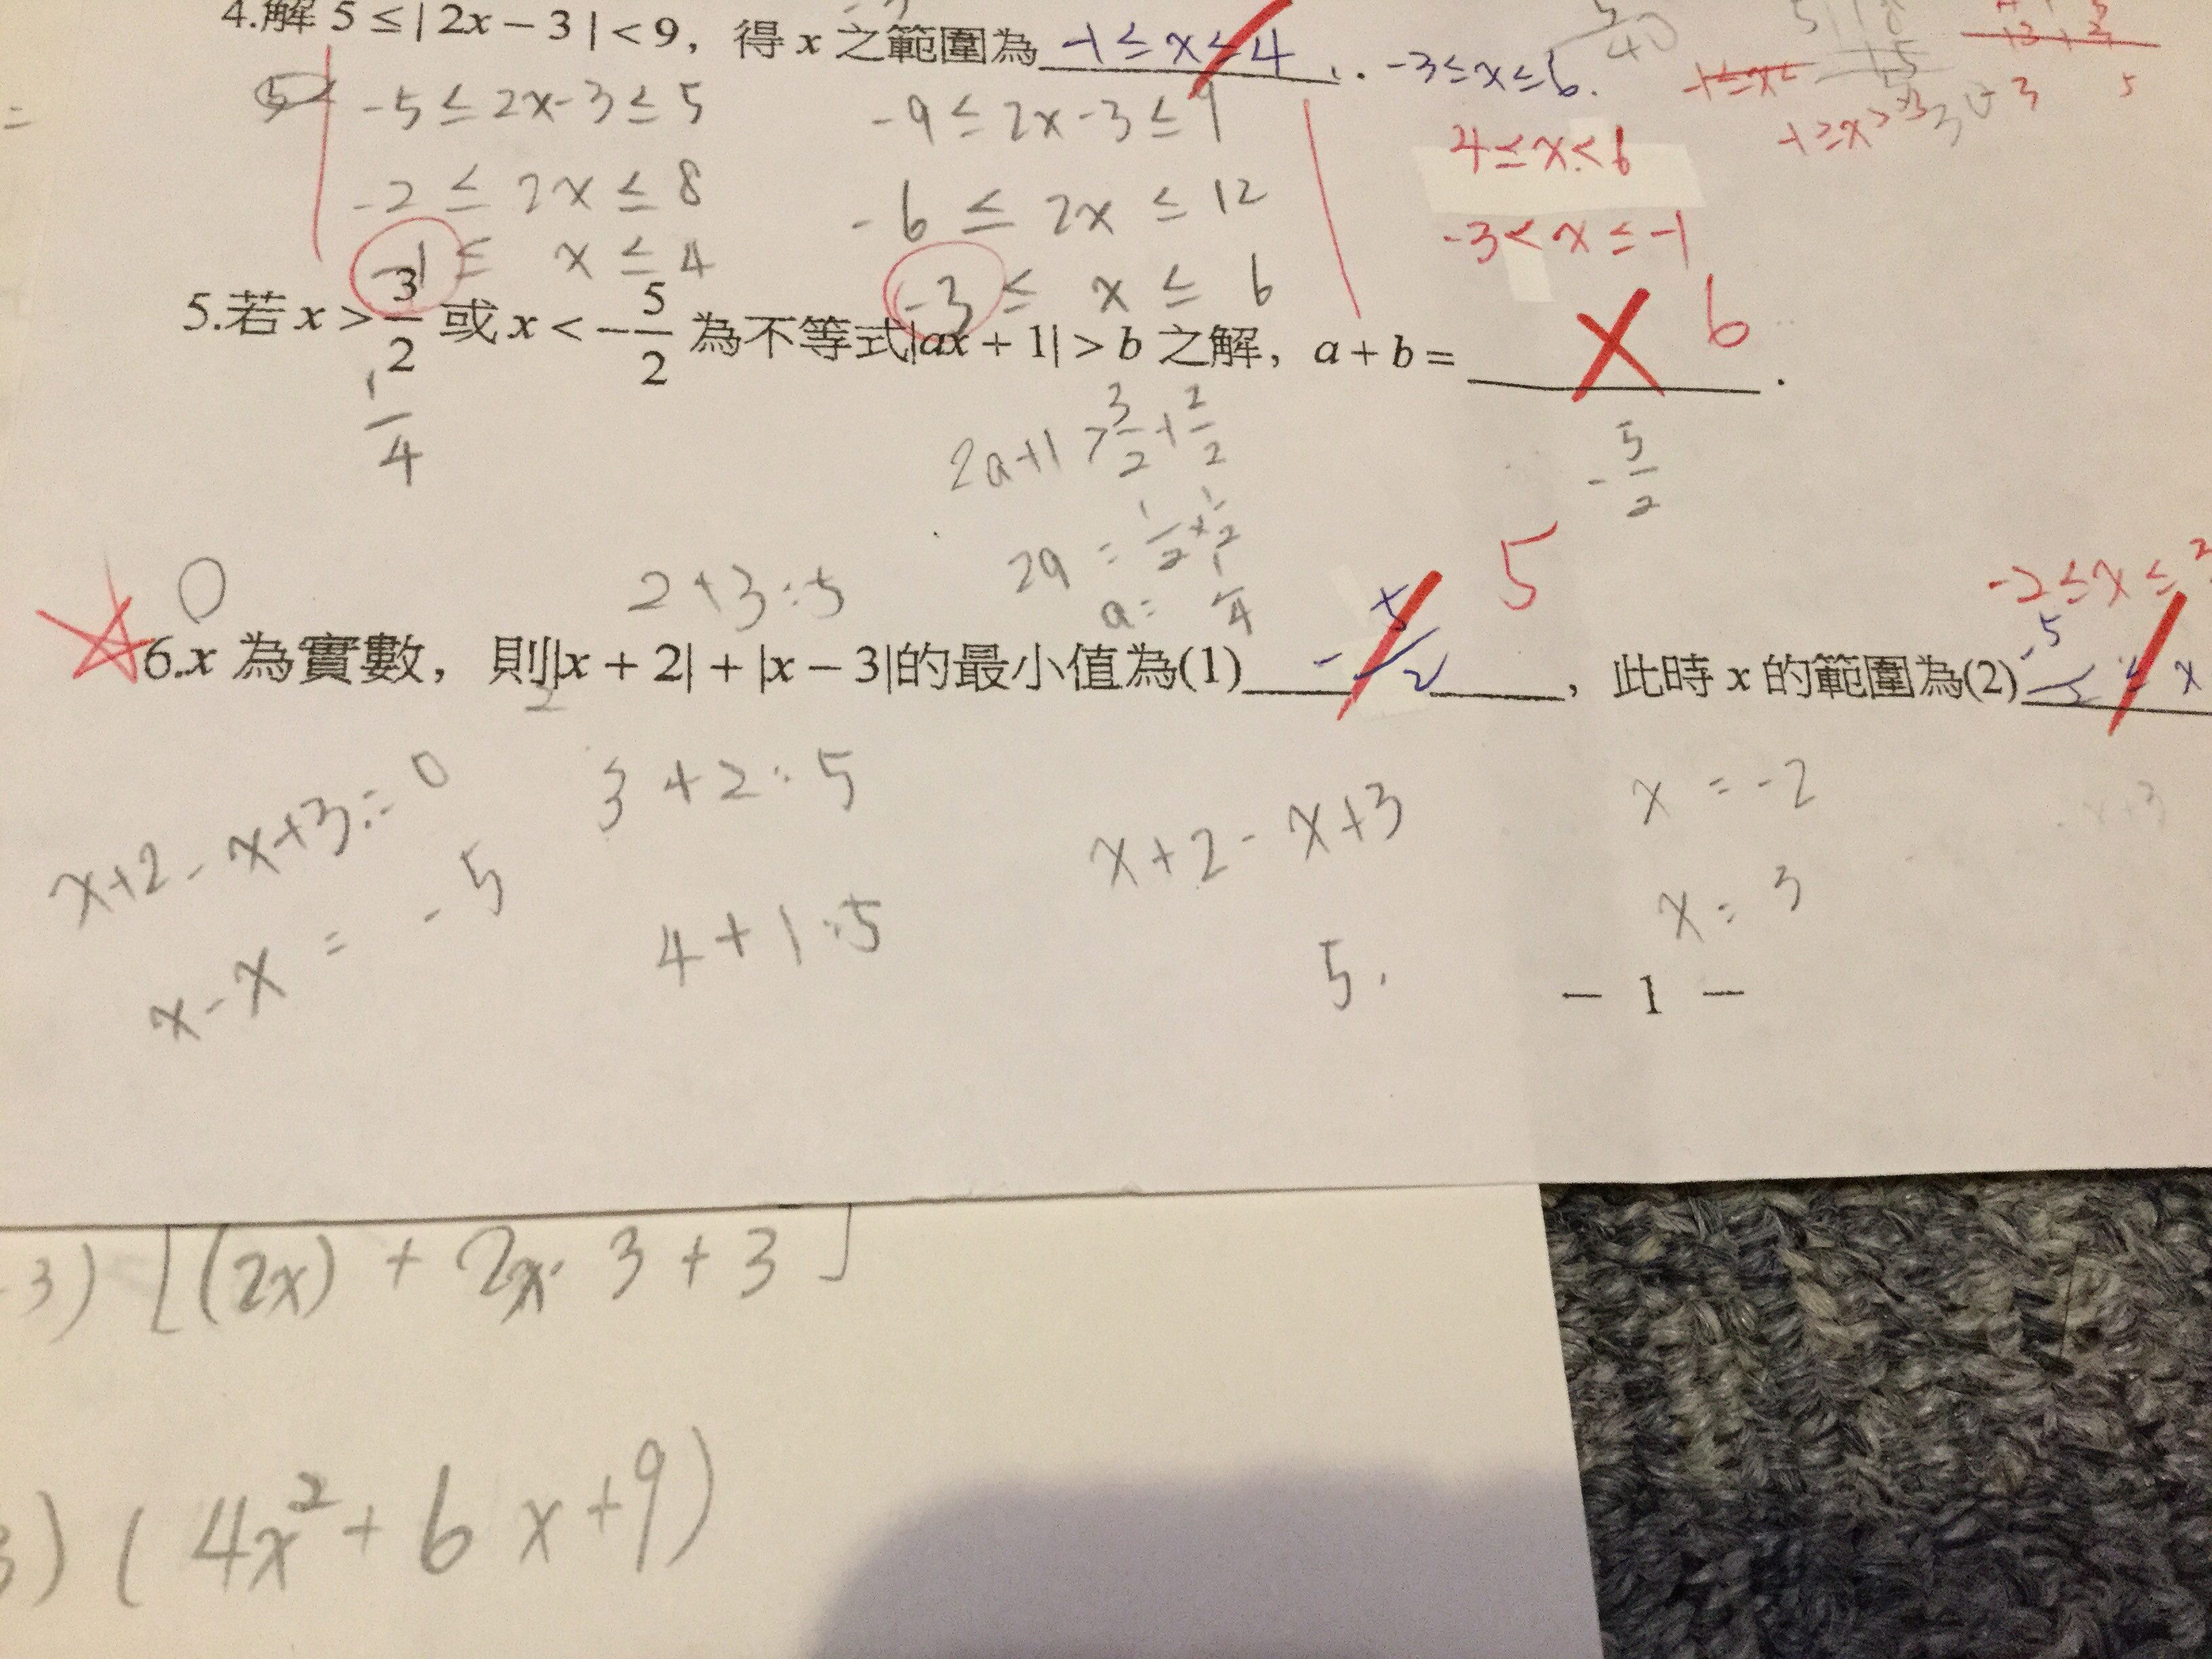 4.解 5 ≤ | 2x − 3 | < 9，得 x 之範圍為 -1 ≤ x ≤ 4 . -3 ≤ x ≤ 6.
-5 ≤ 2x-3 ≤ 5
-9 ≤ 2x-3 ≤ 9
4 ≤ x < 6
-2 ≤ 2x ≤ 8
-6 ≤ 2x ≤ 12
-3 < x ≤ -1
-1 ≤ x ≤ 4
-3 ≤ x ≤ 6
5.若 x > 3/2 或 x < − 5/2 為不等式|ax + 1| > b 之解，a + b = 6 .
1/4
2a+1 > 3/2 + 2/2
-5/2
2a = 1/2 × 1/2
a = 1/4
0
2+3=5
5
-2 ≤ x ≤
6.x 為實數，則|x + 2| + |x − 3|的最小值為(1) -5/2 ，此時 x 的範圍為(2)
2
x+2-x+3=0
3+2=5
x+2-x+3
x = -2
x-x = -5
4+1=5
5.
x = 3
− 1 −
3) [(2x) + 2x· 3 + 3]
3) ( 4x² + 6x+9)